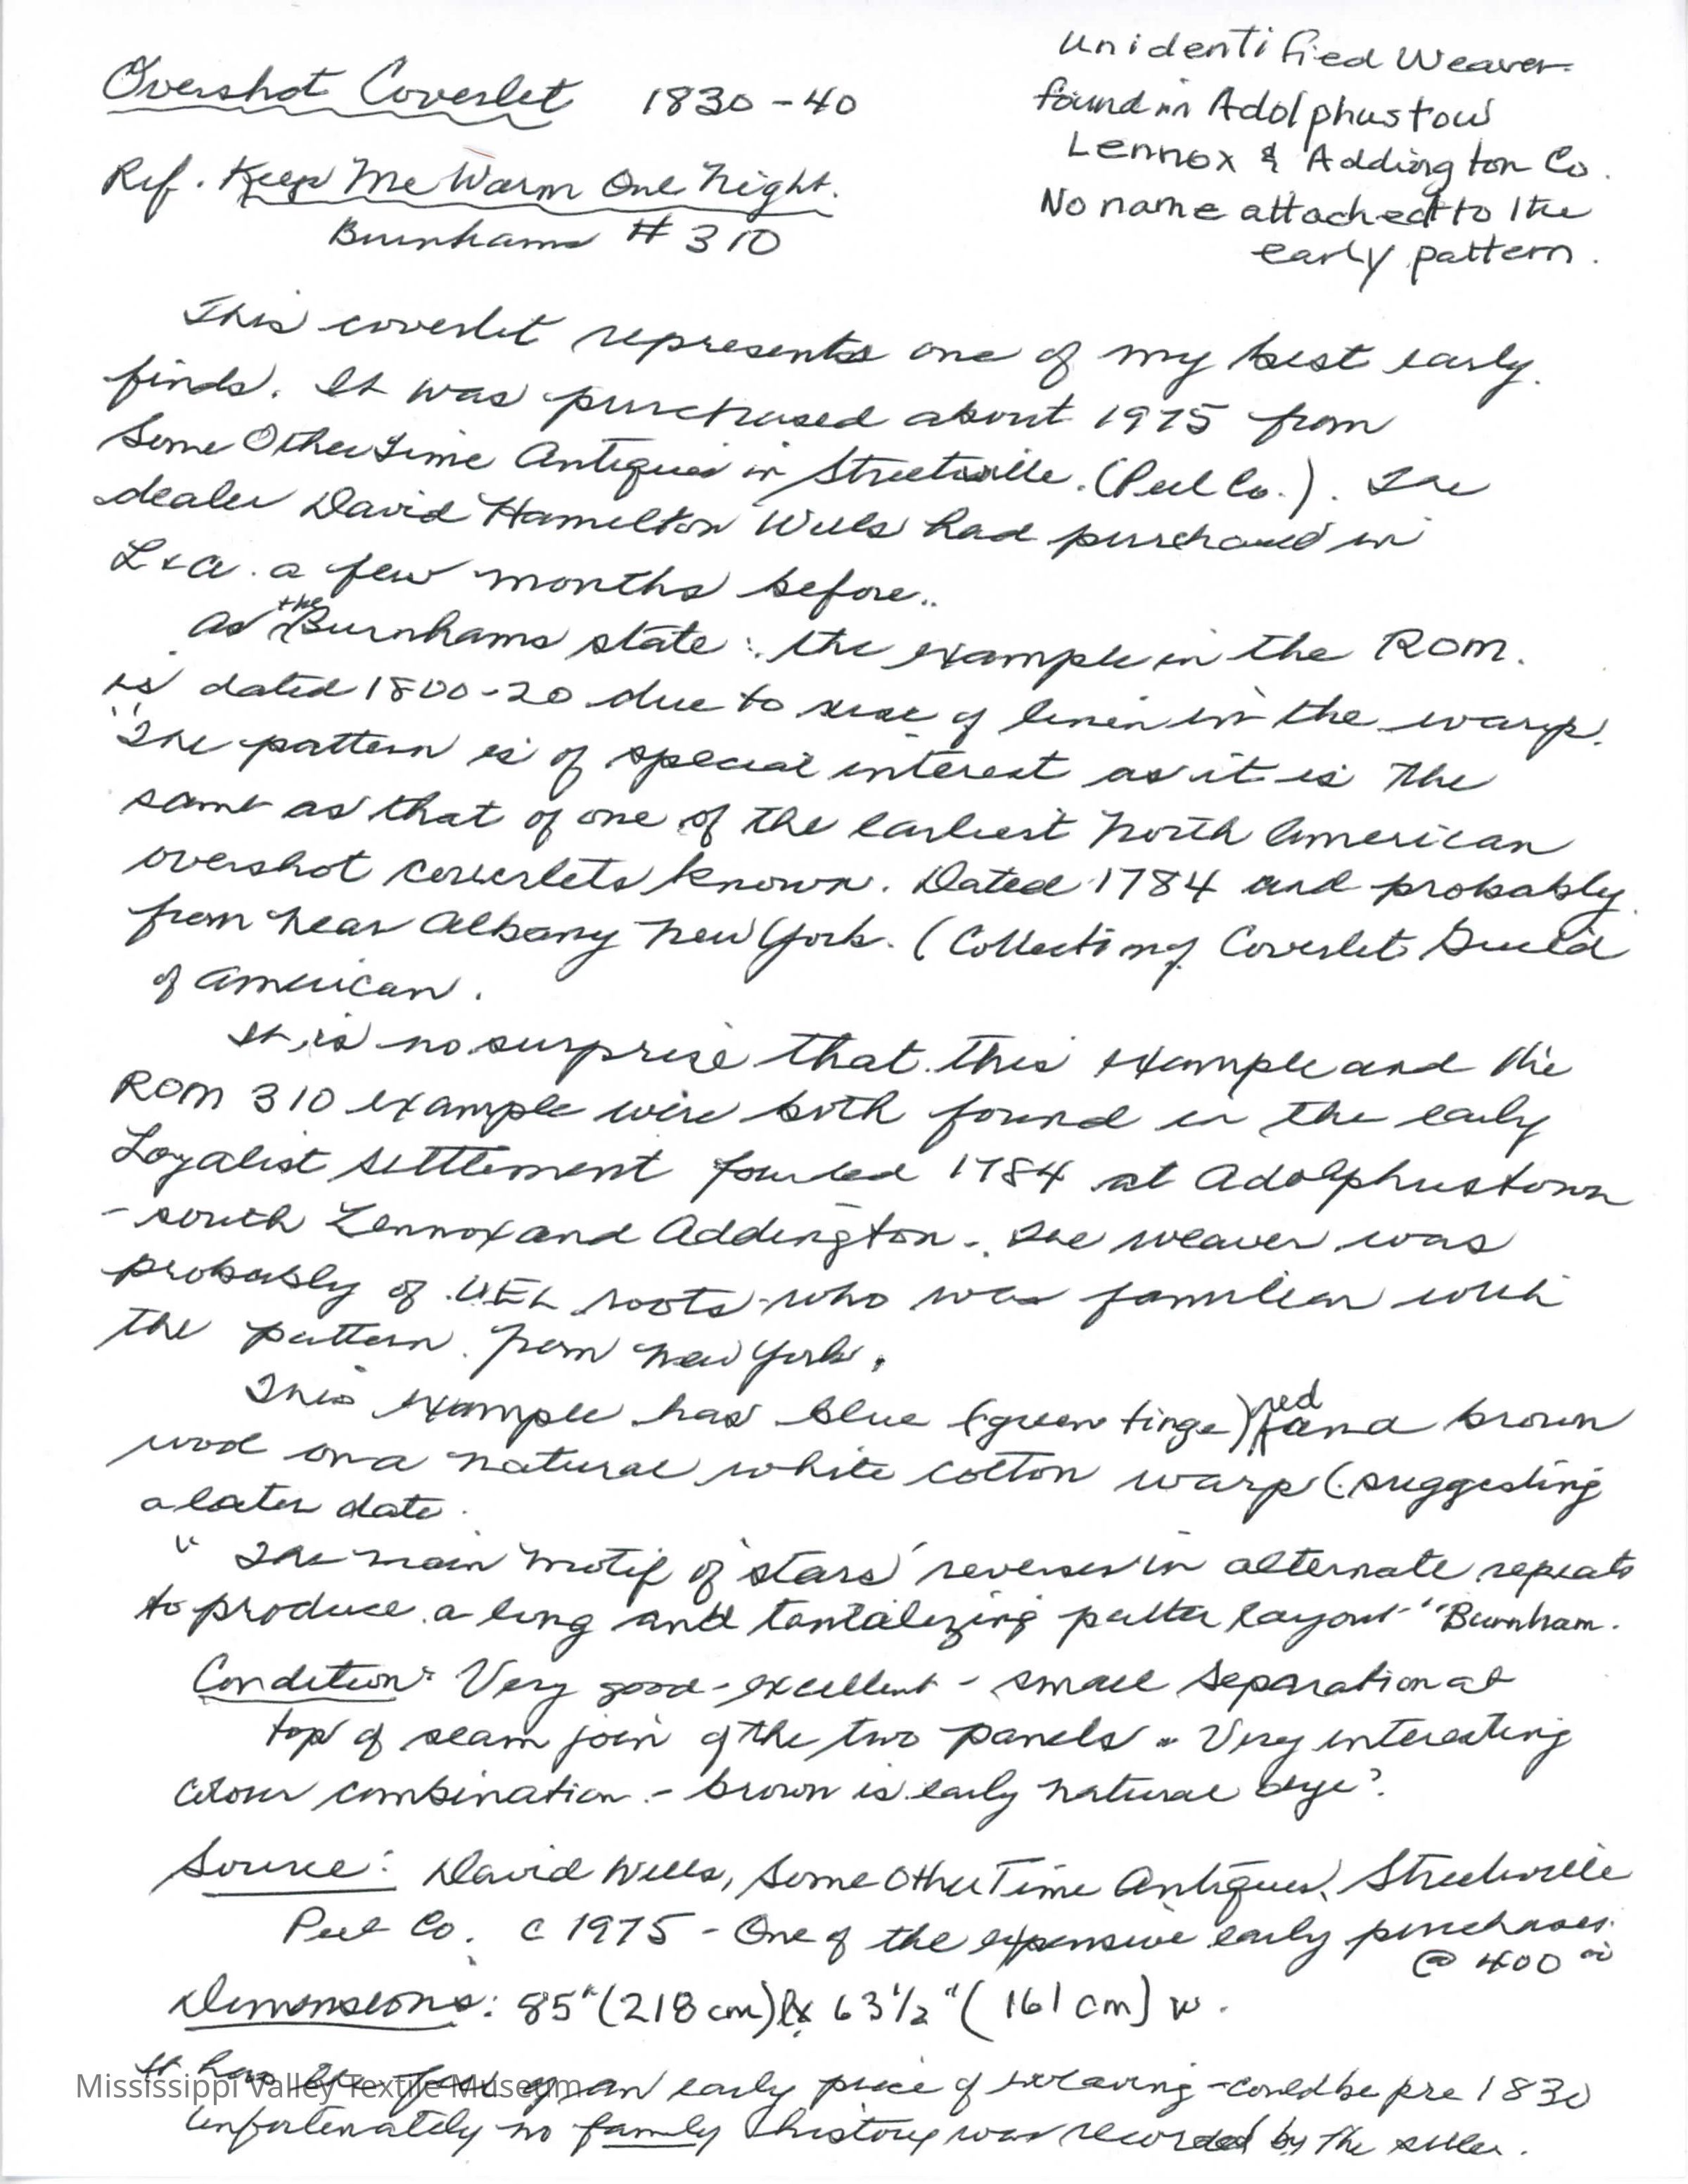 Overshot Coverlet 1830-40
Unidentified Weaver
found in Adolphustow
Lennox & Addington Co.
No name attached to the
early pattern.
Ref. Keep Me Warm One Night.
Burnhams # 310
This coverlet represents one of my best early
finds. It was purchased about 1975 from
Some Other Time Antiques in Streetsville. (Peel Co.). The
dealer David Hamilton Wells had purchased in
L & A. a few months before..
As the Burnhams state: the example in the ROM.
is dated 1800-20 due to use of linen in the warp.
"The pattern is of special interest as it is the
same as that of one of the earliest North American
overshot coverlets known. Dated 1784 and probably
from near Albany New York. (Collecting Coverlets Guild
of American.
It is no surprise that this example and the
ROM 310 example were both found in the early
Loyalist settlement founded 1784 at Adolphustown
- south Lennox and Addington -. The weaver was
probably of UEL roots who was familiar with
the pattern from New York.
This example has blue (green tinge) red and brown
wool on a natural white cotton warp (suggesting
a later date.
" The main motif of 'stars' reverses in alternate repeats
to produce a long and tantalizing patter layout" Burnham.
Condition: Very good - excellent - small separation at
top of seam join of the two panels - Very interesting
colour combination - brown is early natural dye?
Source: David Wells, Some Other Time Antiques, Streetsville
Peel Co. c 1975 - One of the expensive early purchases
@ 400 00
Dimensions: 85" (218 cm) l x 63 1/2 " (161 cm) w.
It has the feel of an early piece of weaving - could be pre 1830
Unfortunately no family history was recorded by the seller.
Mississippi Valley Textile Museum